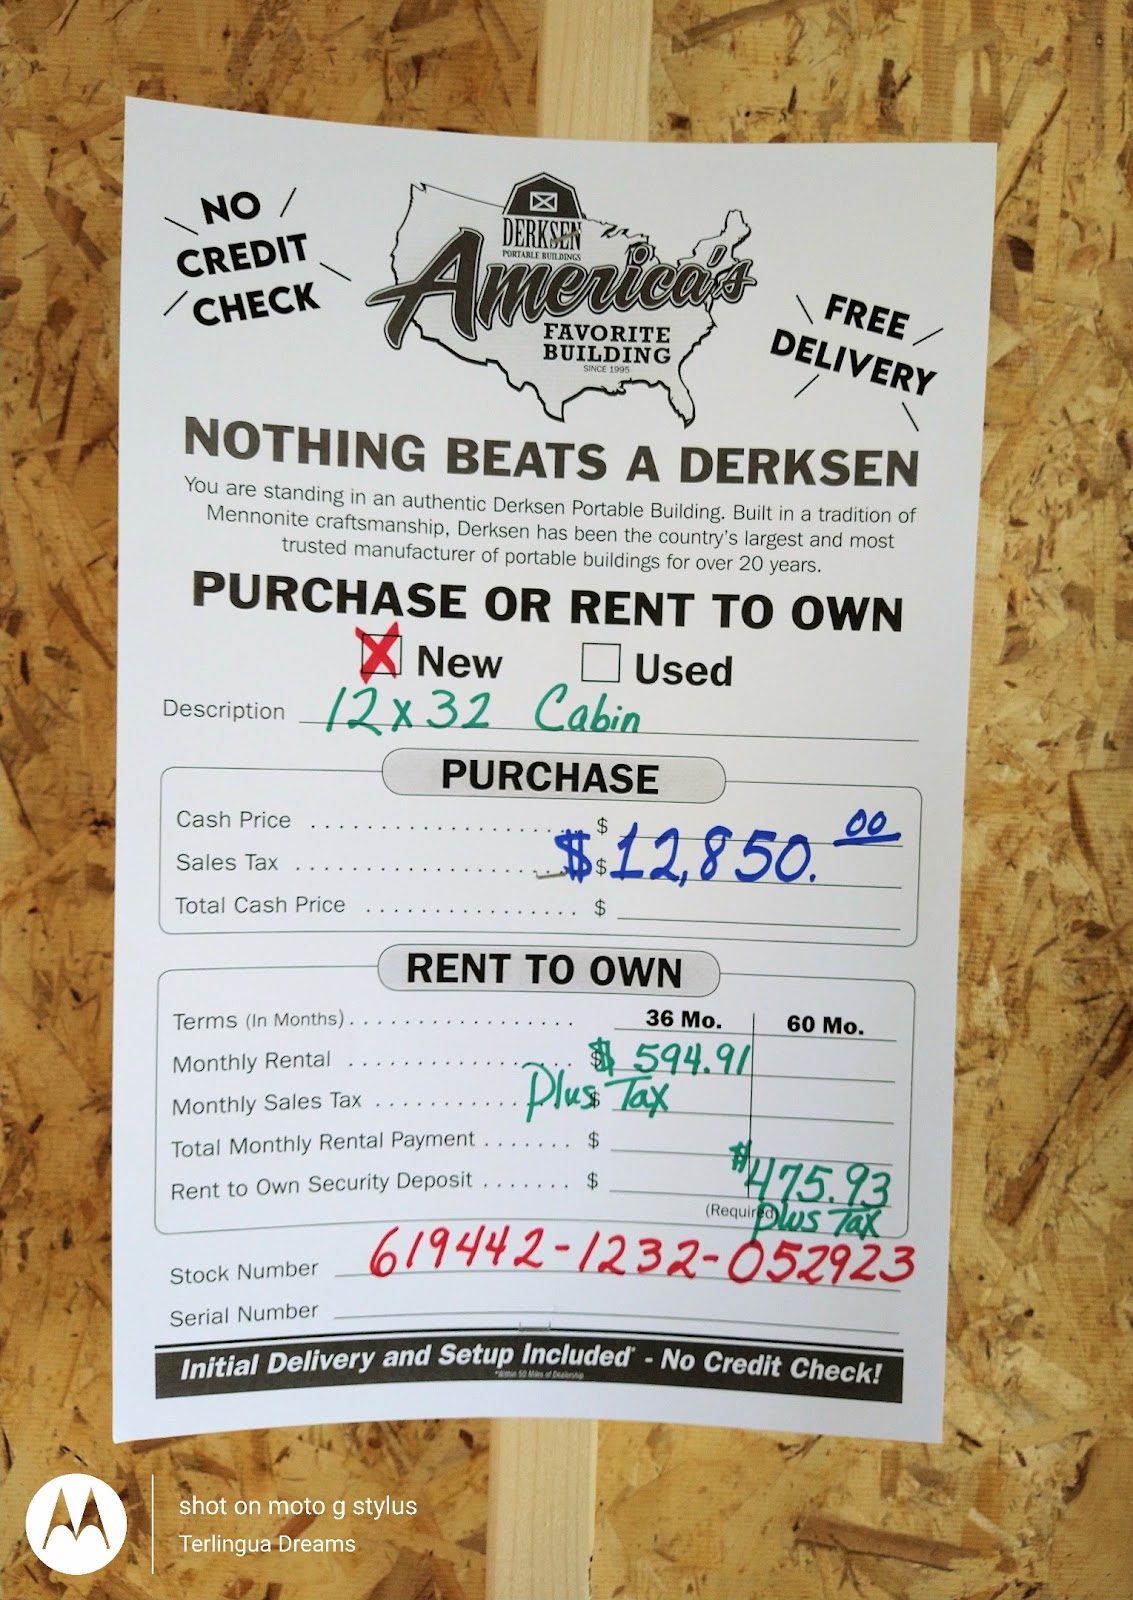 NO
CREDIT
CHECK
DERKSEN
PORTABLE BUILDINGS
America's
FAVORITE
BUILDING
SINCE 1995
FREE
DELIVERY
NOTHING BEATS A DERKSEN
You are standing in an authentic Derksen Portable Building. Built in a tradition of
Mennonite craftsmanship, Derksen has been the country's largest and most
trusted manufacturer of portable buildings for over 20 years.
PURCHASE OR RENT TO OWN
X New Used
Description 12x32 Cabin
PURCHASE
Cash Price .................... $
Sales Tax .................... $ $12,850.00
Total Cash Price ................ $
RENT TO OWN
Terms (In Months)................. 36 Mo. 60 Mo.
Monthly Rental .................. $ $594.91
Monthly Sales Tax .............. $ Plus Tax
Total Monthly Rental Payment ....... $
Rent to Own Security Deposit ....... $ $475.93
(Required) plus Tax
Stock Number 619442-1232-052923
Serial Number
Initial Delivery and Setup Included* - No Credit Check!
*Within 50 Miles of Dealership
shot on moto g stylus
Terlingua Dreams